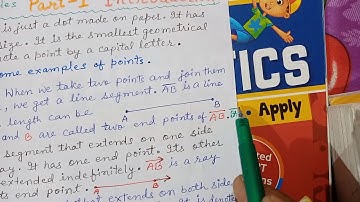 Part-1 Introduc
is just a dot made on paper. It has
size. It is the smallest geometrical
note a point by a capital letter.
some examples of points.
When we take two points and join them
, we get a line segment. AB is a line
length can be
A B
and B are called two end points of AB.
segment that extends on one side
ay. It has one end point. Its other
extended indefinitely. AB is a ray
its end point. A B
that extends on both side
TICS
Apply